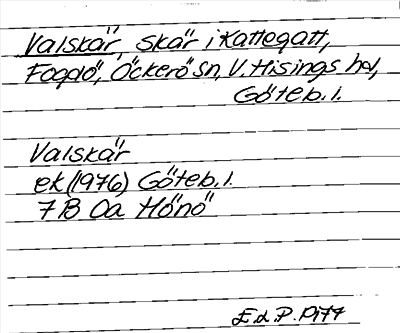 Valskär, skär i Kattegatt,
Fogdö, Öckerö sn, V. Hisings hd,
Göteb. l.
Valskär
ek (1976) Göteb. l.
7B 0a Hönö
E.d. P. Pi77